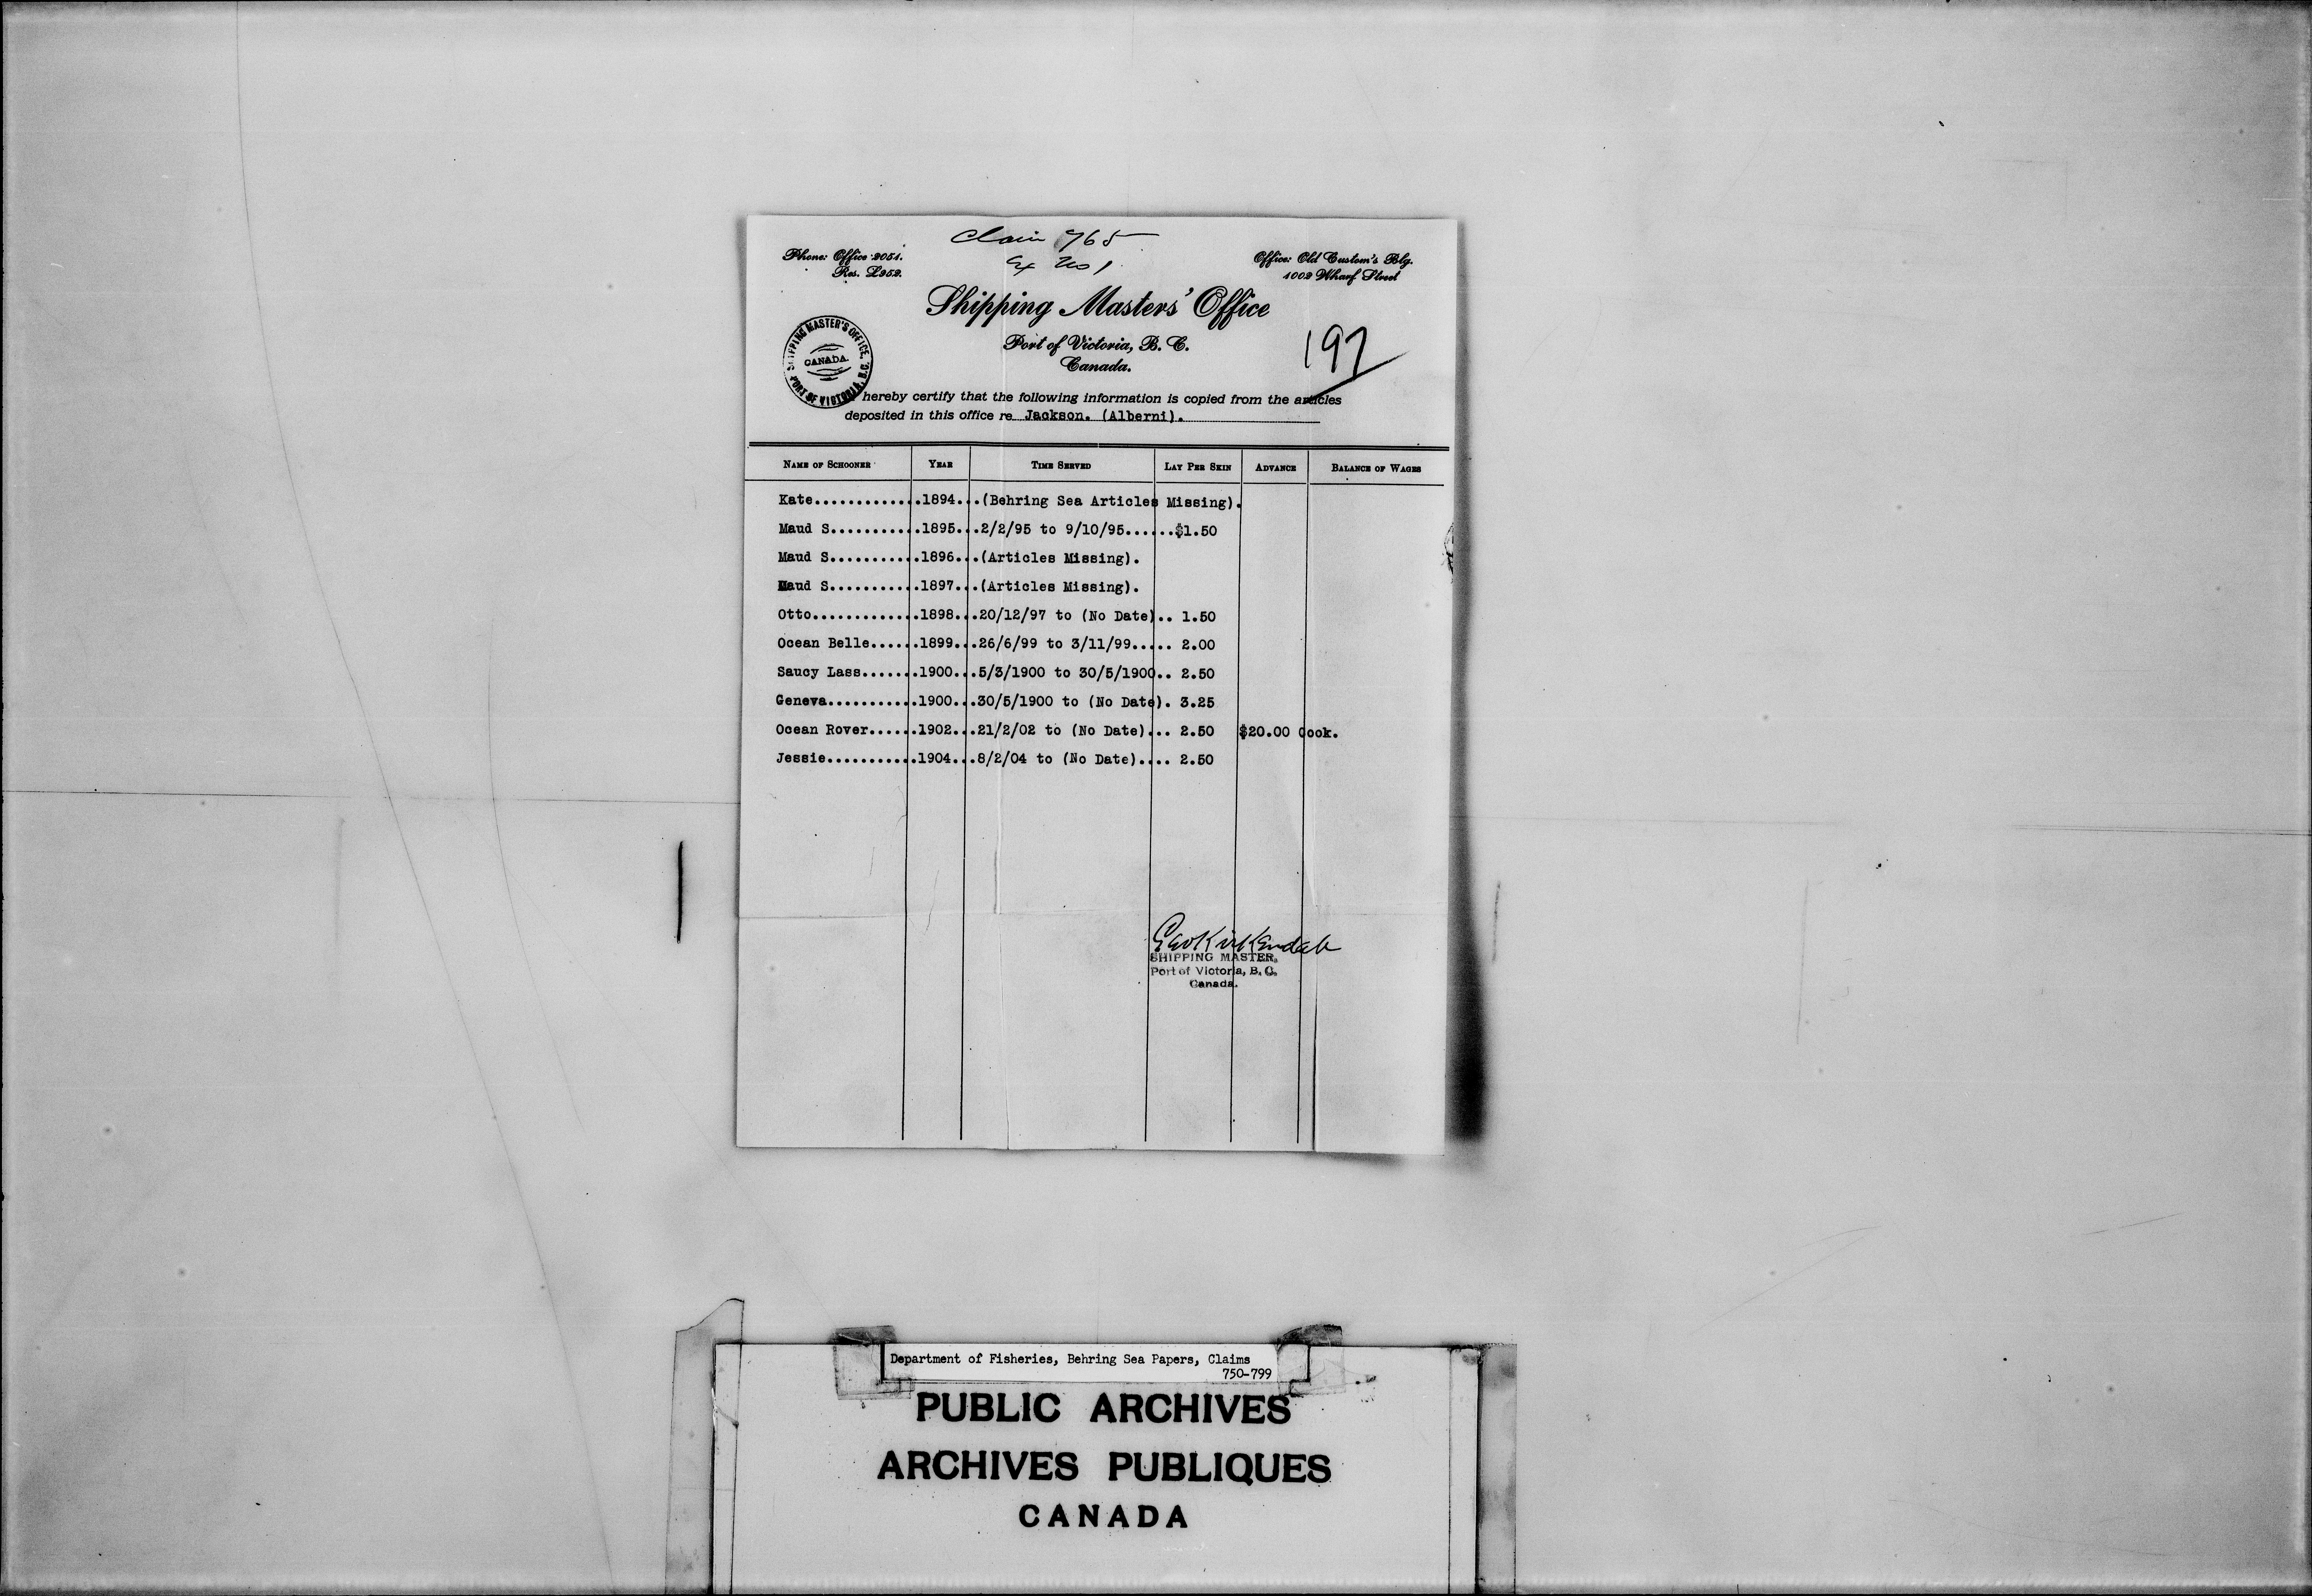 Claim 765
Ex No 1
Phone: Office 2051.
Res. L952.
Office: Old Custom's Blg.
1002 Wharf Street
Shipping Masters' Office
Port of Victoria, B. C.
Canada.
197
SHIPPING MASTER'S OFFICE,
CANADA.
PORT OF VICTORIA, B.C.
hereby certify that the following information is copied from the articles
deposited in this office re Jackson. (Alberni).
NAME OF SCHOONER YEAR TIME SERVED LAY PER SKIN ADVANCE BALANCE OF WAGES
Kate.............1894...(Behring Sea Articles Missing).
Maud S...........1895...2/2/95 to 9/10/95......$1.50
Maud S...........1896...(Articles Missing).
Maud S...........1897...(Articles Missing).
Otto.............1898...20/12/97 to (No Date).. 1.50
Ocean Belle......1899...26/6/99 to 3/11/99..... 2.00
Saucy Lass.......1900...5/3/1900 to 30/5/1900.. 2.50
Geneva...........1900...30/5/1900 to (No Date). 3.25
Ocean Rover......1902...21/2/02 to (No Date)... 2.50 $20.00 Cook.
Jessie...........1904...8/2/04 to (No Date).... 2.50
Geo Kirkendale
SHIPPING MASTER,
Port of Victoria, B. C.
Canada.
Department of Fisheries, Behring Sea Papers, Claims
750-799
PUBLIC ARCHIVES
ARCHIVES PUBLIQUES
CANADA